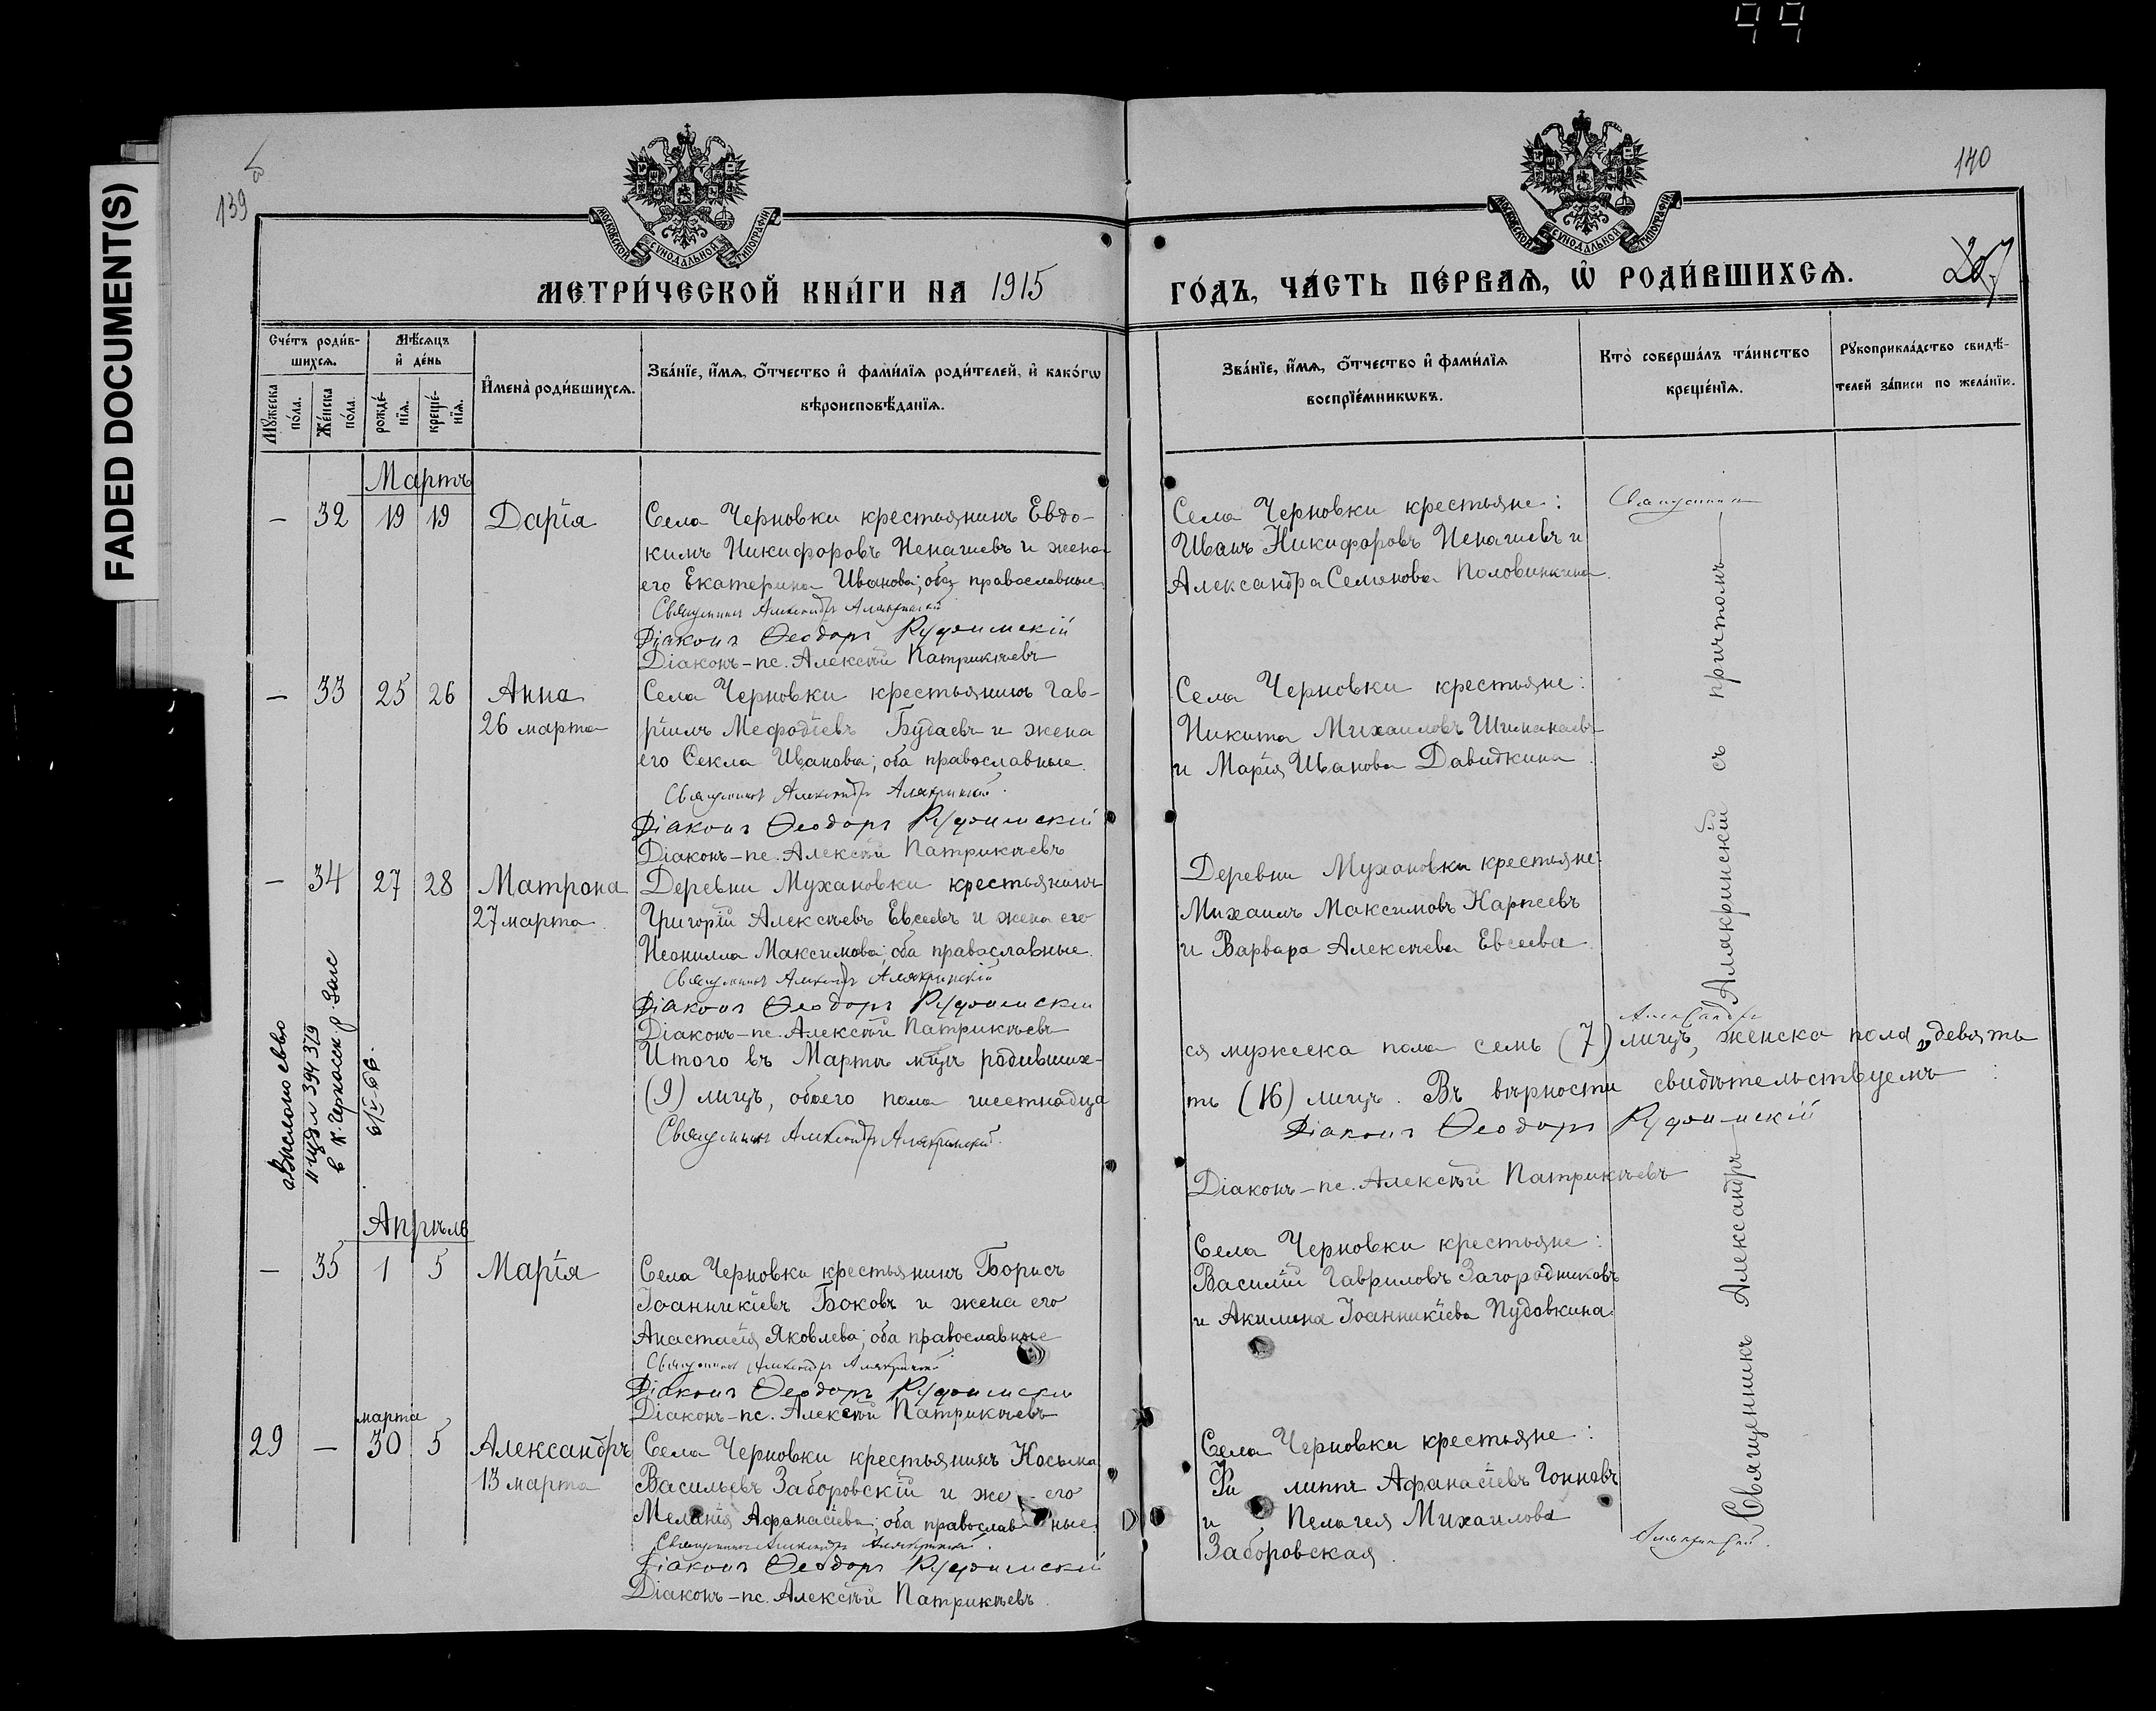 FADED DOCUMENT(S)
99
139
140
МОСКОВСКОЙ СѴНОДАЛЬНОЙ ТИПОГРАФІИ
МОСКОВСКОЙ СѴНОДАЛЬНОЙ ТИПОГРАФІИ
МЕТРИ́ЧЕСКОЙ КНИ́ГИ НА 1915
ГО́ДЪ, ЧА́СТЬ ПЕ́РВАѦ, Ѽ РОДИ́ВШИХСѦ.
Сче́тъ роди́в-
шихсѧ.
Мꙋ́жеска
по́ла.
Же́нска
по́ла.
Мѣ́сѧцъ
и҆ де́нь
рожде́-
нїѧ.
креще́-
нїѧ.
И҆мена̀ роди́вшихсѧ.
Зва́нїе, и҆́мѧ, ѻ҆́тчество и҆ фами́лїѧ роди́телей, и҆ како́гѡ
вѣроисповѣ́данїѧ.
Зва́нїе, и҆́мѧ, ѻ҆́тчество и҆ фами́лїѧ
воспрїе́мникѡвъ.
Кто̀ соверша́лъ та́инство
креще́нїѧ.
Рꙋкоприкла́дство свидѣ́-
телей за́писи по жела́нїю.
Мартъ
— 32 19 19 Дарія
Села Черновки крестьянинъ Евдо-
кимъ Никифоровъ Ненашевъ и жена
его Екатерина Иванова; оба православные.
Священникъ Александръ Алякринскій
Діаконъ Ѳеодоръ
Діаконъ-пс. Алексѣй Патрикѣевъ
Села Черновки крестьяне:
Иванъ Никифоровъ Ненашевъ и
Александра Семенова Половинкина.
Священникъ
— 33 25 26 Анна
26 марта
Села Черновки крестьянинъ Гав-
ріилъ Мефодіевъ Будаевъ и жена
его Ѳекла Иванова; оба православные.
Священникъ Александръ Алякринскій.
Діаконъ Ѳеодоръ
Діаконъ-пс. Алексѣй Патрикѣевъ
Села Черновки крестьяне:
Никита Михаиловъ
и Марія Иванова Давидкина.
— 34 27 28 Матрона
27 марта.
Деревни Мухановки крестьянинъ
Григорій Алексѣевъ Евсеевъ и жена его
Неонилла Максимова; оба православные.
Священникъ Александръ Алякринскій
Діаконъ Ѳеодоръ
Діаконъ-пс. Алексѣй Патрикѣевъ
Деревни Мухановки крестьяне:
Михаилъ Максимовъ Карпеевъ
и Варвара Алексѣева Евсеева.
Итого въ Мартѣ м-цѣ родивших-
ся мужеска пола семь (7) лицъ, женска пола девять
(9) лицъ, обоего пола шестнадца
ть (16) лицъ. Въ вѣрности свидѣтельствуемъ:
Священникъ Александръ Алякринскій.
Діаконъ Ѳеодоръ
Діаконъ-пс. Алексѣй Патрикѣевъ
394379
в К.-Черкасск. р. Загс
Апрѣль
— 35 1 5 Марія
Села Черновки крестьянинъ Борисъ
Іоанникіевъ Боковъ и жена его
Анастасія Яковлева; оба православные
Священникъ Александръ Алякринскій
Діаконъ Ѳеодоръ
Діаконъ-пс. Алексѣй Патрикѣевъ
Села Черновки крестьяне:
Василій Гавриловъ Загородниковъ
и Акилина Іоанникіева Пудовкина.
марта
29 — 30 5 Александръ
13 марта
Села Черновки крестьянинъ Косьма
Васильевъ Заборовскій и же его
Меланія Афанасіева; оба православ ные.
Священникъ Александръ Алякринскій.
Діаконъ Ѳеодоръ
Діаконъ-пс. Алексѣй Патрикѣевъ.
Села Черновки крестьяне:
Фи липпъ Афанасіевъ
и Пелагея Михаилова
Заборовская.
Священникъ Александръ Алякринскій съ причтомъ
Александръ
Алякринскій.